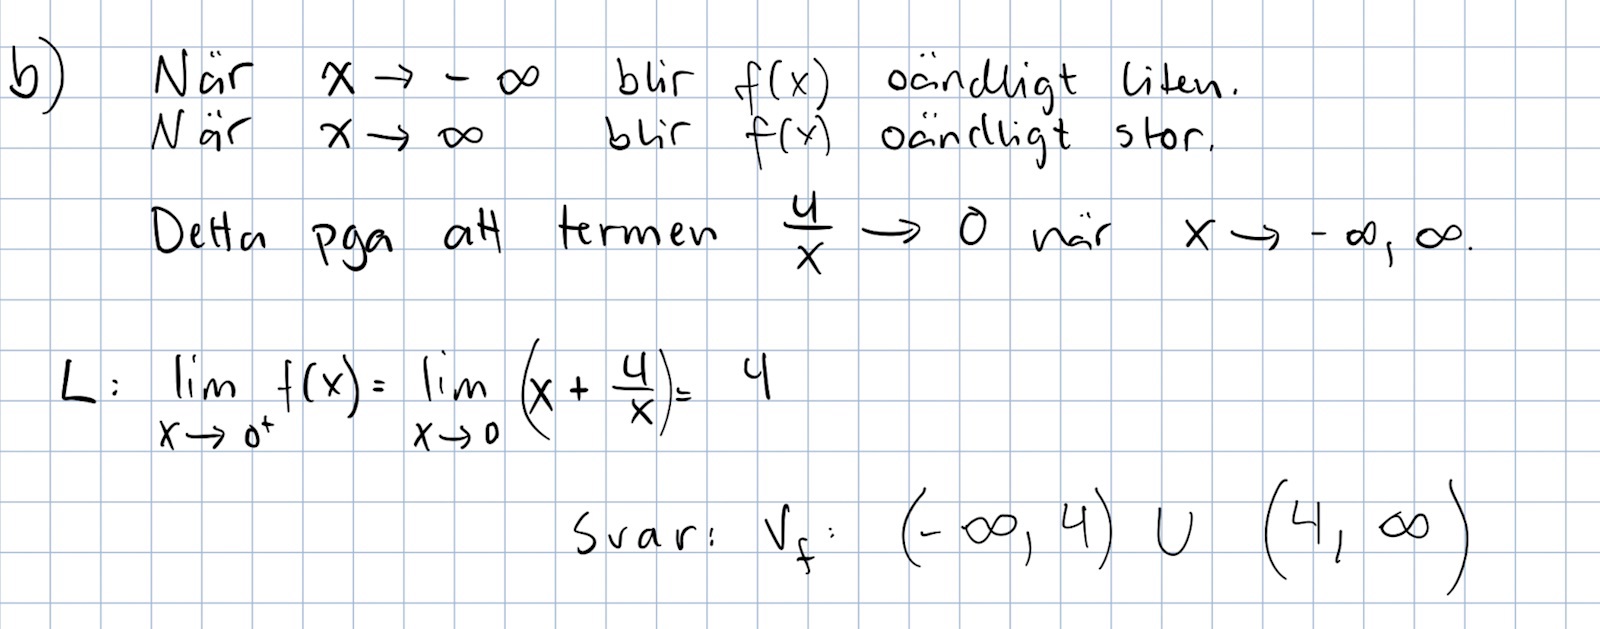 b) När x → - ∞ blir f(x) oändligt liten.
När x → ∞ blir f(x) oändligt stor.
Detta pga att termen 4/x → 0 när x → - ∞, ∞.
L: lim x→0⁺ f(x) = lim x→0 (x + 4/x) = 4
Svar: V_f: (-∞, 4) ∪ (4, ∞)